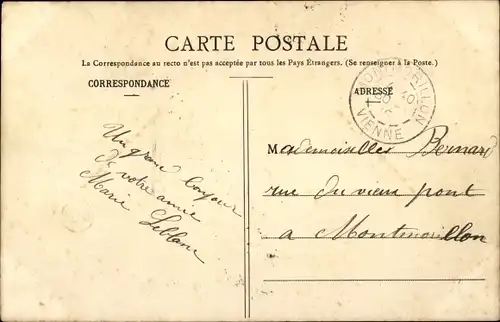 CARTE POSTALE
La Correspondance au recto n'est pas acceptée par tous les Pays Étrangers. (Se renseigner à la Poste.)
CORRESPONDANCE
ADRESSE
MONTMORILLON
VIENNE
Un grand bonjour
de votre amie
Marie Leblanc
Mademoiselles Bernard
rue du vieux pont
a Montmorillon